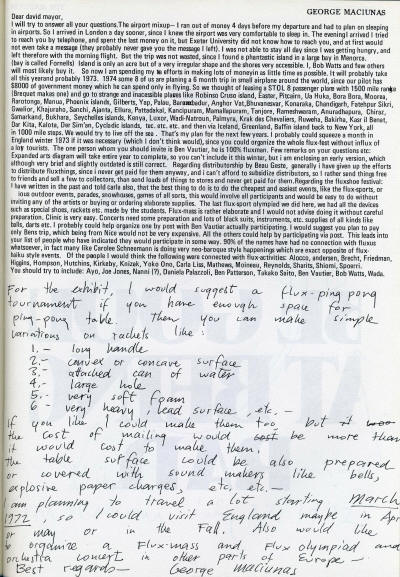 GEORGE MACIUNAS
Dear david mayor,
I will try to answer all your questions. The airport mixup— I ran out of money 4 days before my departure and had to plan on sleeping
in airports. So I arrived in London a day sooner, since I knew the airport was very comfortable to sleep in. The evening I arrived I tried
to reach you by telephone, and spent the last money on it, but Exeter University did not know how to reach you, and at first would
not even take a message (they probably never gave you the message I left). I was not able to stay all day since I was getting hungry, and
left therefore with the morning flight. But the trip was not wasted, since I found a phantastic island in a large bay in Menorca.
(bay is called Fornells) Island is only an acre but of a very irregular shape and the shores very accessible. I, Bob Watts and few others
will most likely buy it. So now I am spending my efforts in making lots of money in as little time as possible. It will probably take
all this year and probably 1973. 1974 some 8 of us are planing a 6 month trip in small airplane around the world, since our pilot has
$8000 of government money which he can spend only in flying. So we thought of leasing a STOL 8 passenger plane with 1500 mile range
(Breguet makes one) and go to strange and inaccessible places like Robinso Cruso island, Easter, Pitcairn, Ua Huka, Bora Bora, Moorea,
Rarotonga, Manus, Phoenix islands, Gilberts, Yap, Palau, Borambudor, Anghor Vat, Bhuvanesvar, Konaraka, Chandigarh, Fatehpur Sikri,
Gwalior, Khajuraho, Sanchi, Ajanta, Ellura, Pattadakal, Kancipuram, Mamallapuram, Tanjore, Rameshwaram, Anuradhapura, Chiraz,
Samarkand, Bukhara, Seychelles islands, Kenya, Luxor, Wadi-Natroun, Palmyra, Kruk des Chevaliers, Ruweha, Bakirha, Kasr il Benat,
Dar Kita, Kalota, Der Sim'an, Cycladic islands, tec. etc. etc. and then via Iceland, Greenland, Baffin island back to New York, all
in 1000 mile steps. We would try to live off the sea. That's my plan for the next few years. I could probably spend a month in
England winter 1973 if it was necessary (which I don't think would), since you could organize the whole flux-fest without influx of
a lot tourists. The one person whom you should invite is Ben Vautier, he is 100% fluxman. Few remarks on your questions etc:
Expanded arts diagram will take entire year to complete, so you can't include it in this winter, but i am enclosing an early version, which
although very brief and slightly outdated is still correct. Regarding distributorship by Beau Geste, generally i have given up the efforts
to distribute fluxthings, since i never get paid for them anyway, and I can't afford to subsidize distributors, so I rather send things free
to friends and sell a few to collectors, than send loads of things to stores and never get paid for them. Regarding the fluxshoe festival:
I have written in the past and told carla also, that the best thing to do is to do the cheapest and easiest events, like the flux-sports, or
ious outdoor events, parades, snowshoes, games of all sorts, this would involve all participants and would be easy to do without
inviting any of the artists or buying or ordering elaborate supplies. The last flux-sport olympiad we did here, we had all the devices
such as special shoes, rackets etc. made by the students. Flux-mass is rather elaborate and I would not advise doing it without careful
preparation. Clinic is very easy. Concerts need some preparation and lots of black suits, instruments, etc. supplies of all kinds like
balls, darts etc. I probably could help organize one by post with Ben Vautier actually participating. I would suggest you plan to pay
only Bens trip, which being from Nice would not be very expensive. All the others could help by participating via post. This leads into
your list of people who have indicated they would participate in some way. 90% of the names have had no connection with fluxus
whatsoever, in fact many like Carollee Schneeman is doing very neo-baroque style happenings which are exact opposite of flux-
haiku style events. Of the people I would think the following were connected with flux-activities: Alocco, andersen, Brecht, Friedman,
Higgins, Hompson, Hutchins, Kirkeby, Knizak, Yoko Ono, Carla Liss, Mathews, Moineau, Reynolds, Sharits, Shiomi, Spoerri.
You should try to include: Ayo, Joe Jones, Nanni (?), Daniela Palazzoli, Ben Patterson, Takako Saito, Ben Vautier, Bob Watts, Wada.
For the exhibit, I would suggest a flux-ping pong
tournament if you have enough space for
ping-pong table. Then you can make simple
variations on rackets like:
1. — long handle
2. — convex or concave surface
3. — attached can of water
4. — large hole
5. — very soft foam
6 — very heavy, lead surface, etc. —
if you like I could make them too, but it
the cost of mailing would cost be more than
it would cost to make them.
the table surface could be also prepared
or covered with sound makers like bells,
explosive paper charges, etc, etc. —
I am planning to travel a lot starting March
1972, so I could visit England maybe in Apr
or may or in the Fall. Also would like
to organize a Flux-mass and Flux olympiad and
orchestra concert in other parts of Europe —
Best regards — George Maciunas